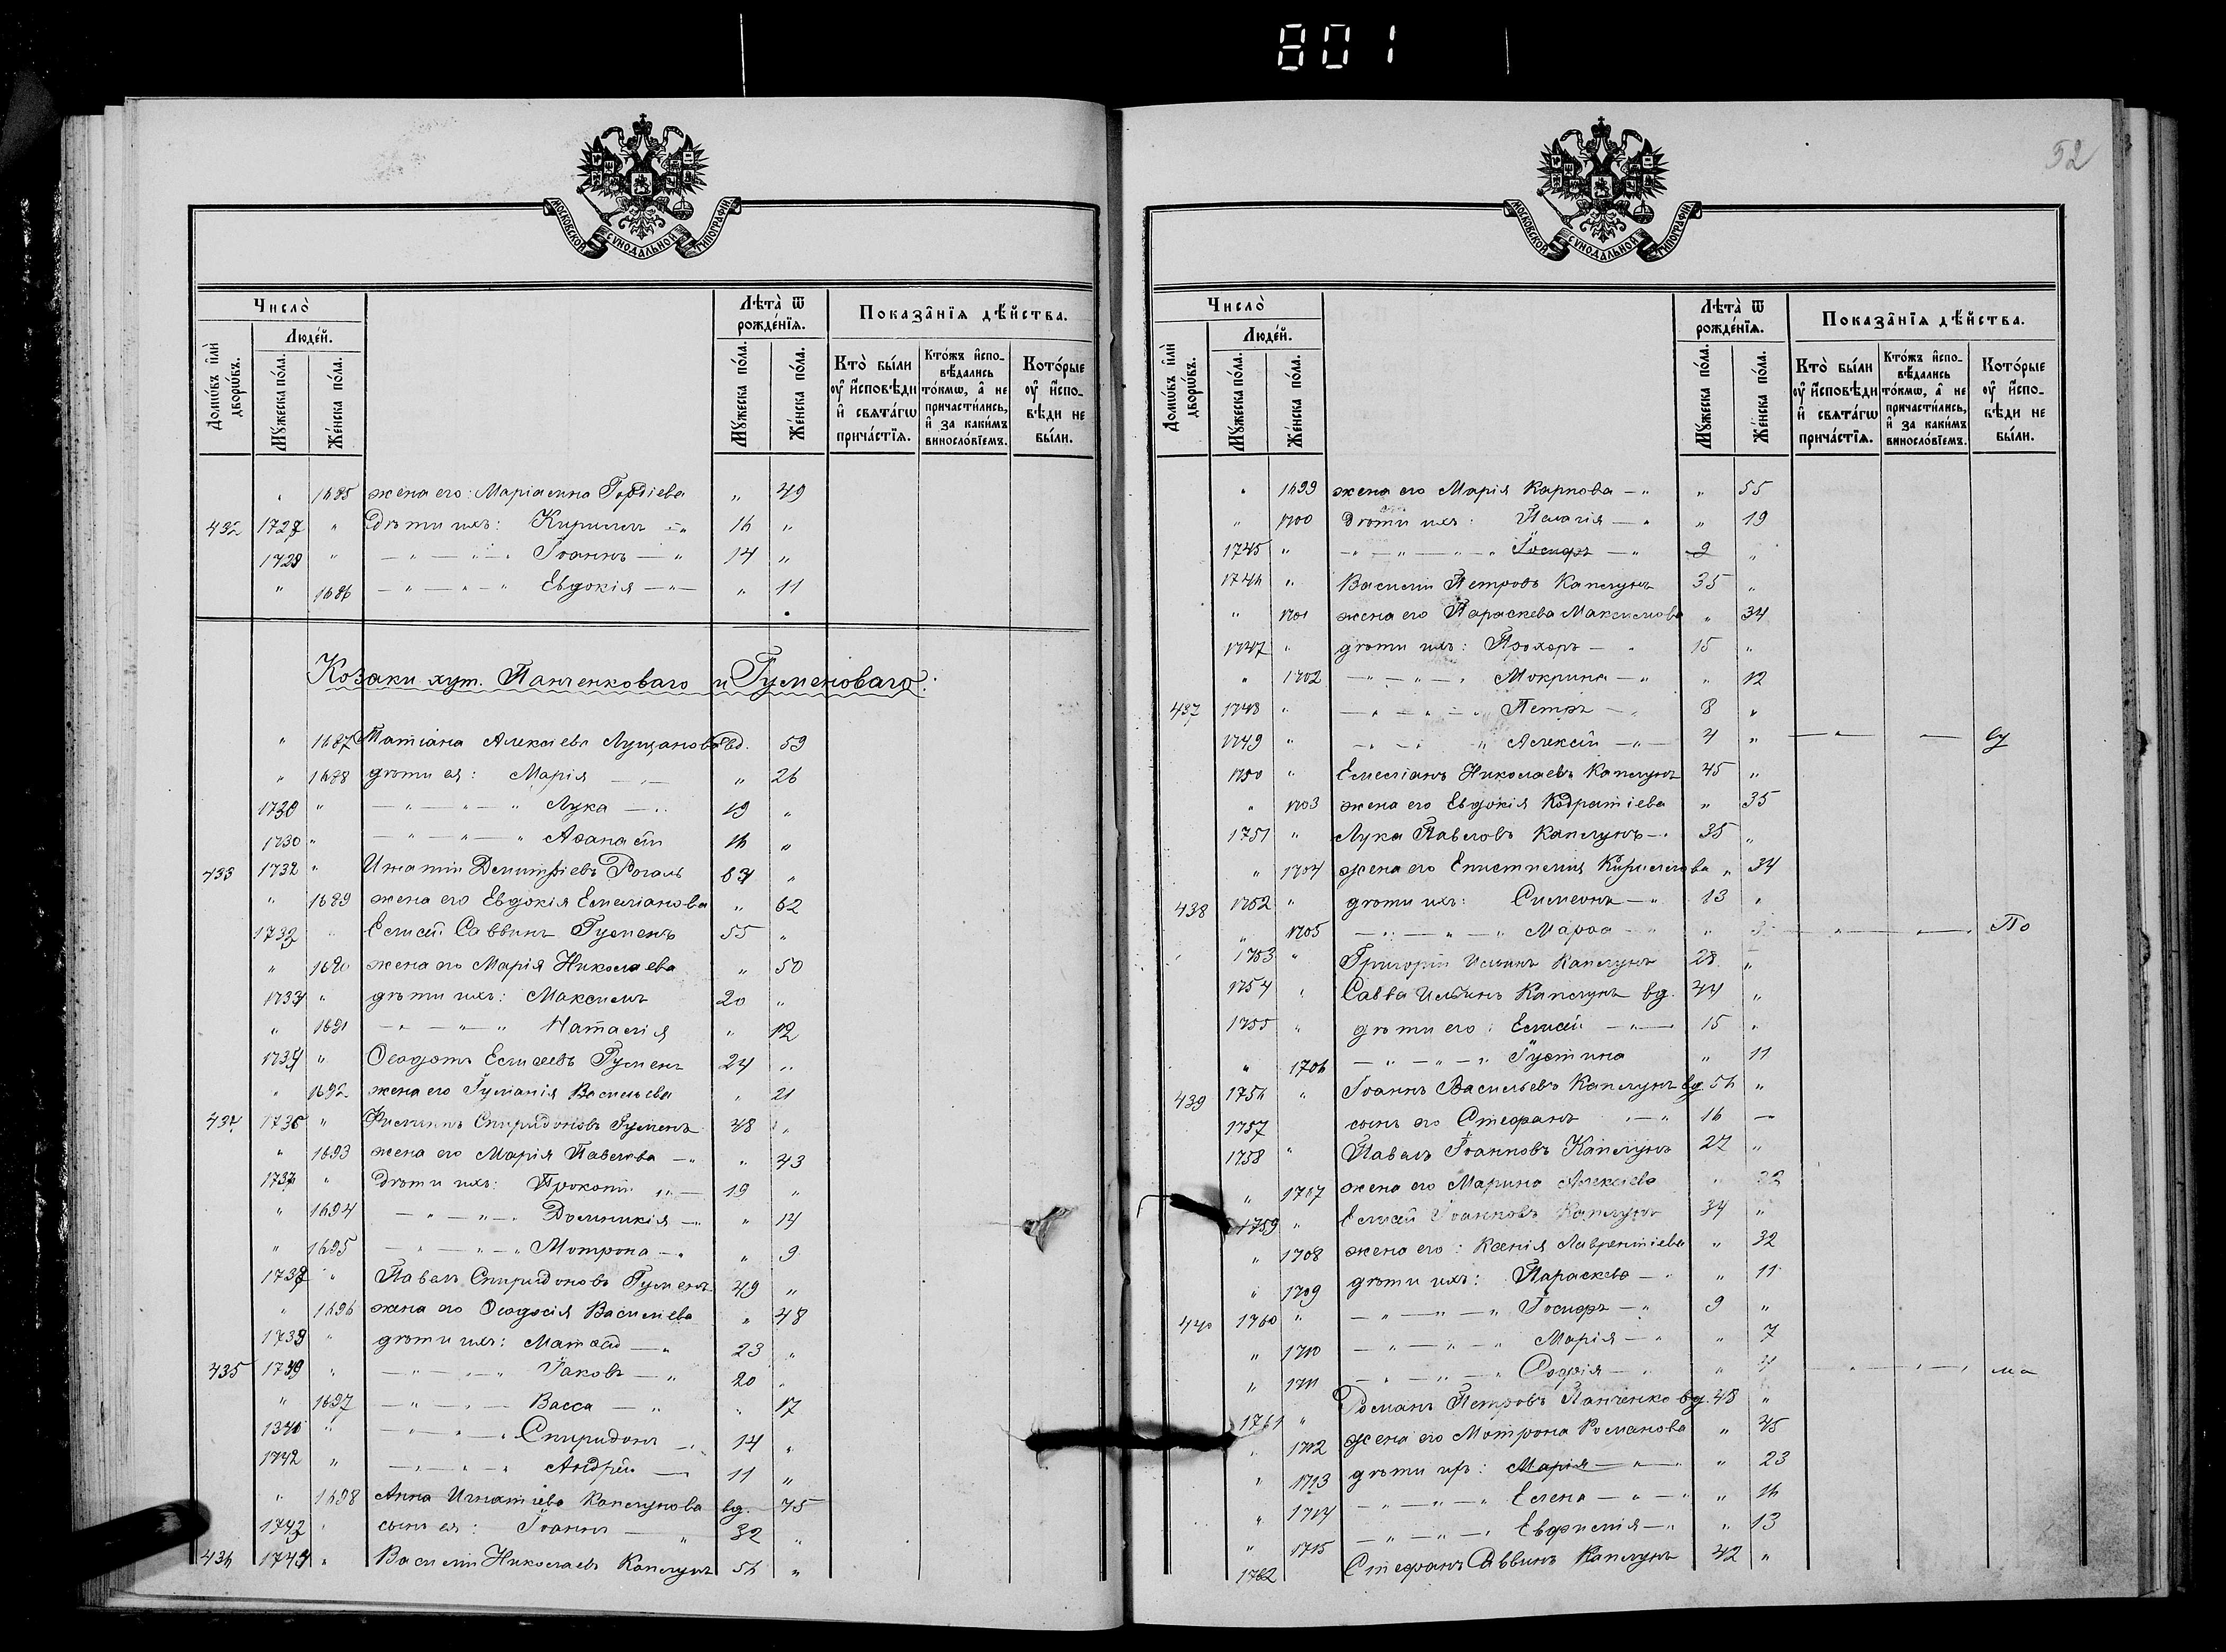 801
52
МОСКОВСКОЙ СѴНОДАЛЬНОЙ ТИПОГРАФІИ
Число̀
Людей.
Лѣта̀ ѿ рожде́нїѧ.
Показа̂нїѧ дѣ́йства.
Домѡ́въ и҆лѝ дворѡ́въ.
Мꙋжеска по́ла.
Же́нска по́ла.
Мꙋжеска по́ла.
Же́нска по́ла.
Кто̀ бы́ли ᲂу҆ и҆́сповѣди и҆ свѧта́гѡ прича́стїѧ.
Кто́жъ и҆спо-вѣ́дались то́кмѡ, а҆ не причасти́лись, и҆ за каки́мъ виносло́вїемъ.
Кото́рые ᲂу҆ и҆́спо-вѣди не бы́ли.
" 1685 жена его: Маріамна Гордіева " 49
432 1727 " Дѣти ихъ: Кириллъ — " 16 "
1729 " — " — " — " Іоаннъ — " 14 "
" 1686 — " — " — " Евдокія — " — " 11
Козаки хут. Панченковаго и Гуменоваго:
" 1687 Татіана Алексіева Лущанова вд. 59
" 1688 дѣти ея: Марія — " — " 26
1730 " — " — " — " Лука — " 19 "
1730 " — " — " — " Аѳанасій 16 "
433 1732 " Игнатій Димитріевъ Рогаль 64 "
" 1689 жена его Евдокія Емеліанова " 62
1732 " Елисей Саввинъ Гуменъ 55 "
" 1690 жена его Марія Николаева " 50
1734 " дѣти ихъ: Максимъ 20 "
" 1691 — " — " — " Наталія " 12
1734 " Ѳеодотъ Елисеевъ Гуменъ 24 "
" 1692 жена его Іуліанія Васильева " 21
434 1736 " Филиппъ Спиридоновъ Гуменъ 48 "
" 1693 жена его Марія Павлова — " " 43
1737 " Дѣти ихъ: Прокопій " — 19 "
" 1694 — " — " — " Домникія — " " 14
" 1695 — " — " — " Мотрона — " " 9
1738 " Павелъ Спиридоновъ Гуменъ 49 "
" 1696 жена его Ѳеодосія Василіева " 48
1739 " дѣти ихъ: Матѳей — " 23 "
435 1739 " — " — " — " Іаковъ — " 20 "
" 1697 — " — " — Васса — " " 17
1340 " — " — " — " Спиридонъ — " 14 "
1742 " — " — " — " Андрей — 11 "
" 1698 Анна Игнатіева Каплунова вд. 75
1743 " сынъ ея: Іоаннъ — " 32 "
436 1744 " Василій Николаевъ Каплунъ 56 "
" 1699 жена его Марія Карпова — " " 55
" 1700 Дѣти ихъ: Пелагія — " " 19
1745 " — " — " — " — " Іосифъ — " 9 "
1746 " Василій Петровъ Каплунъ 35 "
" 1701 жена его Параскева Максимова " 34
1747 " дѣти ихъ: Прохоръ — " 15 "
" 1702 — " — " — " Мокрина — " " 12
437 1748 " — " — " — " Петръ — " 8 "
1749 " — " — " " Алексій — " — 4 " — " — " — су
1750 " Емеліанъ Николаевъ Каплунъ 45 "
" 1703 жена его Евдокія Кодратіева " 35
1751 " Лука Павловъ Каплунъ — " 35 "
" 1704 жена его Епистимія Кириллова " 34
438 1752 " дѣти ихъ: Симеонъ — " 13 "
" 1705 — " — " — " Марѳа — " " 3 — " — " — По
1753 " Григорій Ильинъ Каплунъ 28 "
1754 " Савва Ильинъ Каплунъ вд. 44 "
1755 " дѣти его: Елисей — " — 15 "
" 1706 — " — " — " Іустина " 11
439 1756 " Іоаннъ Васильевъ Каплунъ вд. 56 "
1757 сынъ его Стефанъ " — " 16 —
1758 " Павелъ Іоанновъ Каплунъ 27 "
" 1707 жена его Марина Алексіева " 22
1759 " Елисей Іоанновъ Каплунъ 34 "
" 1708 жена его: Ксенія Лаврентіева " 32
" 1709 дѣти ихъ: Параскева — " " 11
440 1760 " — " — " — " Іосифъ — " 9 "
" 1710 — " — " — " Марія — " " 7
" 1711 — " — " — " Софія — " " 4 " — " — " ма
1761 " Романъ Петровъ Панченко вд. 48 "
" 1712 жена его Мотрона Романова " 45
" 1713 дѣти ихъ: Марія — " — " 23
" 1714 — " — " — " Елена — " — " " 16
" 1715 — " — " — " Евфимія — " " 13
1762 Стефанъ Саввинъ Каплунъ 42 "